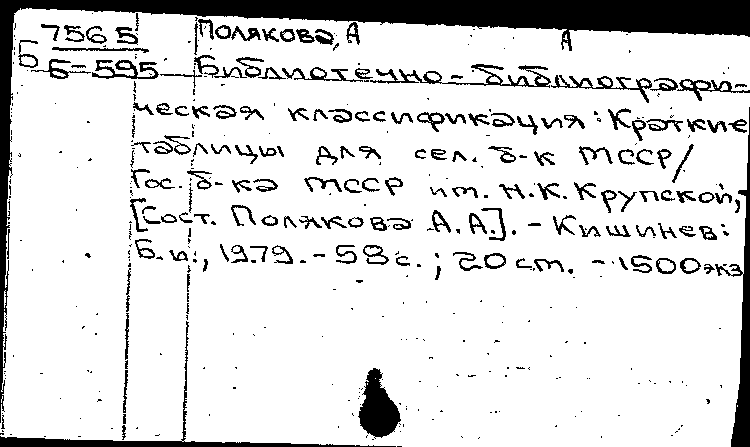 7565 Полякова, А А
Б Б-595 Библиотечно-библиографи-
ческая классификация: Краткие
таблицы для сел. б-к МССР/
Гос. б-ка МССР им. Н.К. Крупской,
[Сост. Полякова А.А.]. - Кишинев:
Б.и., 1979. - 58 с.; 20 см. - 1500 экз